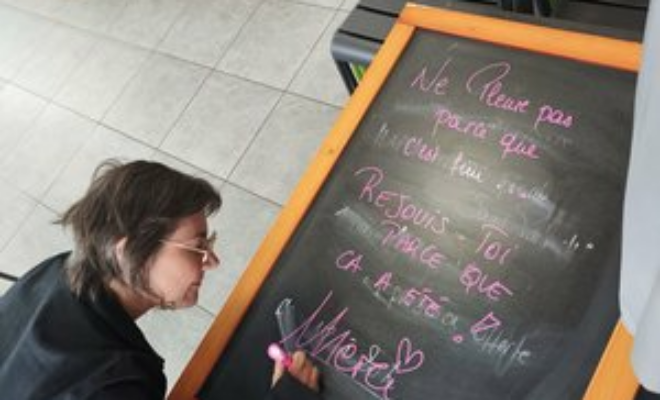 Ne Pleure pas
parce que
c'est fini
REJOUIS-TOI
PARCE QUE
CA A ÉTÉ !
Merci